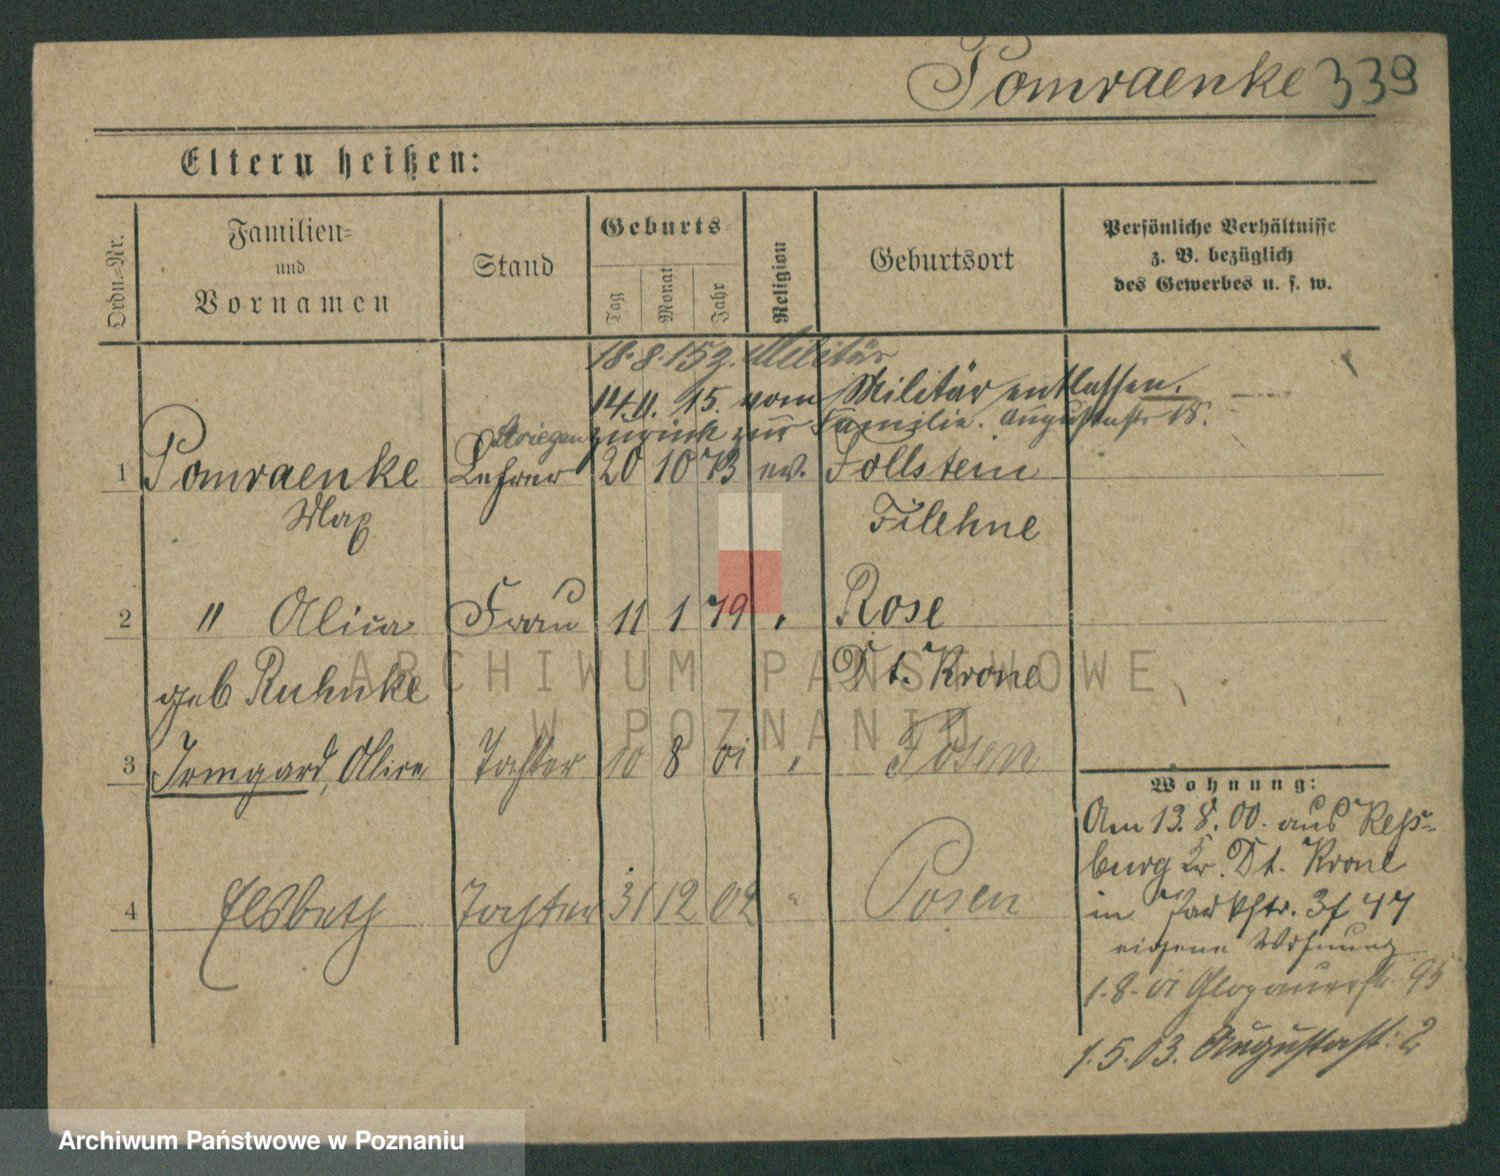 Pomraenke 339
Eltern heißen:
Ordn.-Nr.
Familien-
und
Vornamen
Stand
Geburts-
Tag
Monat
Jahr
Religion
Geburtsort
Persönliche Verhältnisse
z. B. bezüglich
des Gewerbes u. s. w.
18.8.15 z. Militär
14.11.15. vom Militär entlassen.
zurück zur Familie. Augustastr 18.
1 Pomraenke Lehrer 20 10 73 ev. Follstein
Max Filehne
2 " Alice Frau 11 1 79 " Rose
geb Ruhnke Dt. Krone
3 Irmgard, Alice Tochter 10 8 01 " Posen
4 Elsbeth Tochter 31 12 02 " Posen
Wohnung:
Am 13.8.00. aus
burg Kr. Dt. Krone
in Parkstr. 3
eigene Wohnung
1.8.01 Glogauerstr. 95
1.5.03. Augustastr. 2
ARCHIWUM PAŃSTWOWE
W POZNANIU
Archiwum Państwowe w Poznaniu